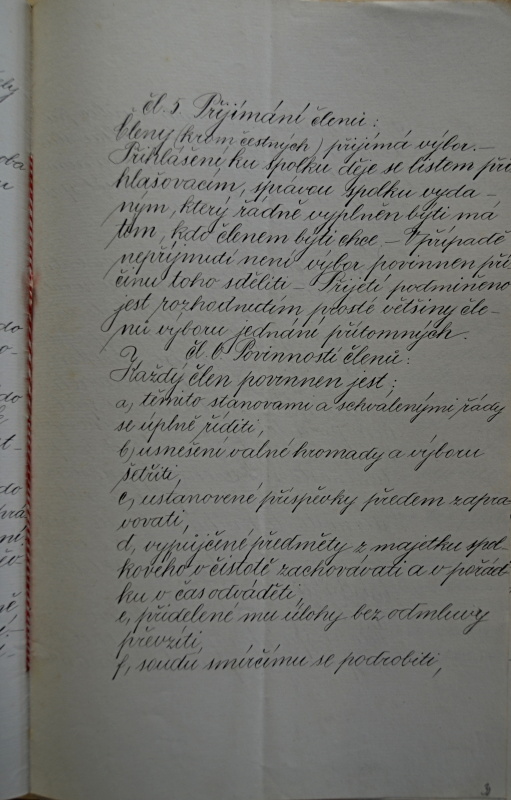 čl. 5 Přijímání členů:
Členy (krom čestných) přijímá výbor. —
Přihlášení ku spolku děje se listem při
hlašovacím, správou spolku vyda -
ným, který řádně vyplněn býti má
tím, kdo členem býti chce. — V případě
nepřijmutí není výbor povinnen pří
činu toho sděliti — Přijetí podmíněno
jest rozhodnutím prosté většiny čle-
nů výboru jednání přítomných.
čl. 6 Povinnosti členů:
Každý člen povinnen jest:
a, těmito stanovami a schválenými řády
se úplně říditi,
b, usnešení valné hromady a výboru
šetřiti,
c, ustanovené příspěvky předem zapra
vovati,
d, vypůjčené předměty z majetku spol-
kového v čistotě zachovávati a v pořád
ku v čas odváděti,
e, přidelené mu úlohy bez odmluvy
převzíti,
f, soudu smírčímu se podrobiti,
3